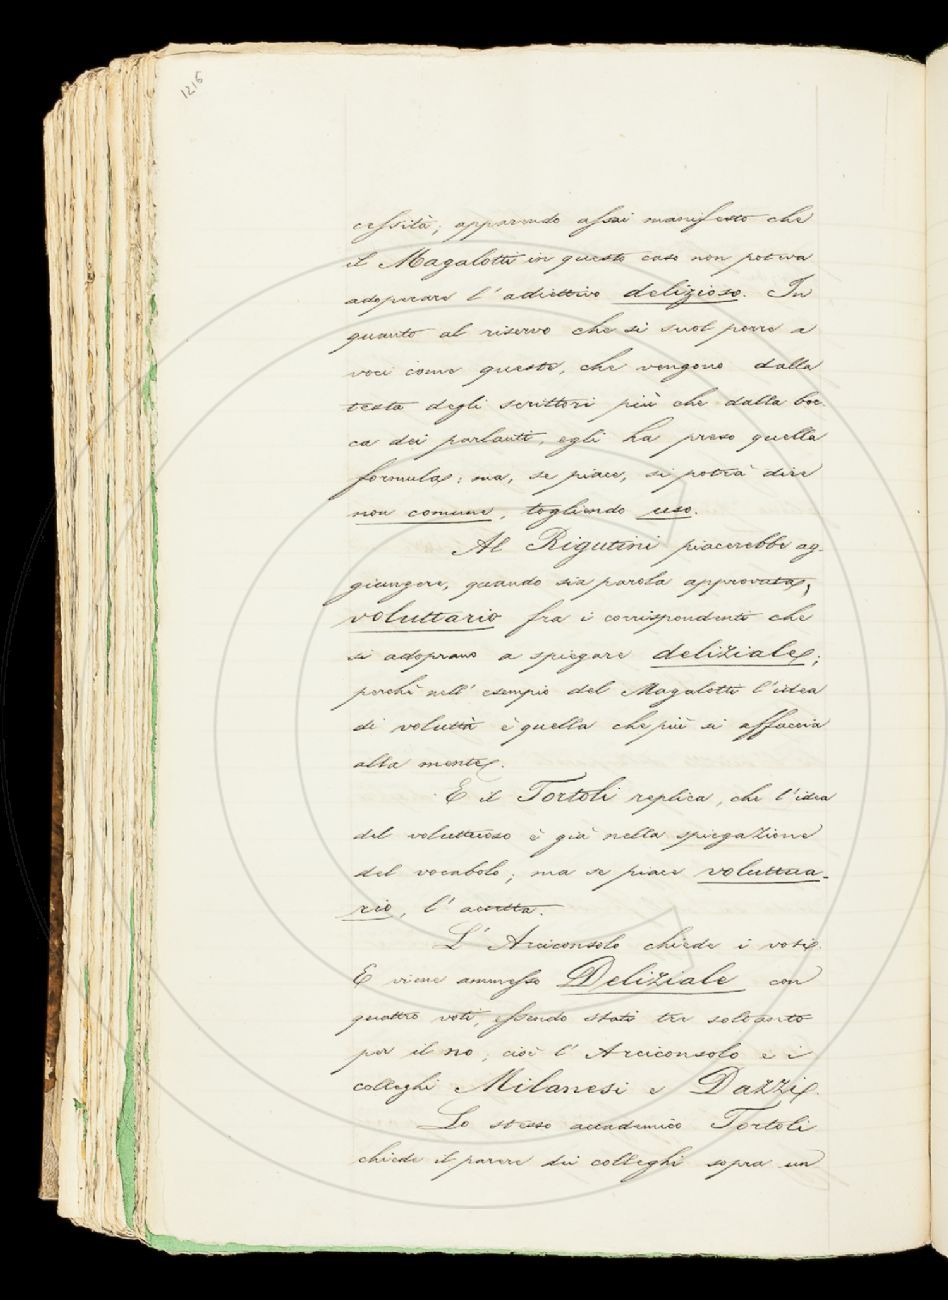 1216
cessità; apparendo assai manifesto che
il Magalotti in questo caso non poteva
adoperare l'adiettivo delizioso. In
quanto al riservo che si suol porre a
voci come queste, che vengono dalla
testa degli scrittori più che dalla boc-
ca dei parlanti, egli ha preso quella
formula; ma, se piace, si potrà dire
non comune, togliendo uso.
Al Rigutini piacerebbe ag-
giungere, quando sia parola approvata,
voluttario fra i corrispondenti che
si adoprano a spiegare deliziale;
perchè nell'esempio del Magalotti l'idea
di voluttà è quella che più si affaccia
alla mente.
E il Tortoli replica, che l'idea
del voluttuoso è già nella spiegazione
del vocabolo; ma se piace voluttua-
rio, l'accetta.
L'Arciconsolo chiede i voti.
E viene ammesso Deliziale con
quattro voti, essendo stati tre soltanto
per il no, cioè l'Arciconsolo e i
colleghi Milanesi e Dazzi.
Lo stesso accademico Tortoli
chiede il parere dei colleghi sopra un